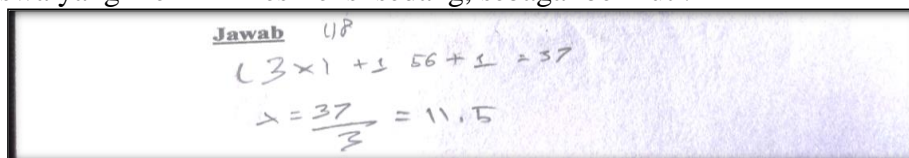 Jawab 48
(3x) + 1 56 + 1 = 37
x = 37/3 = 11,5